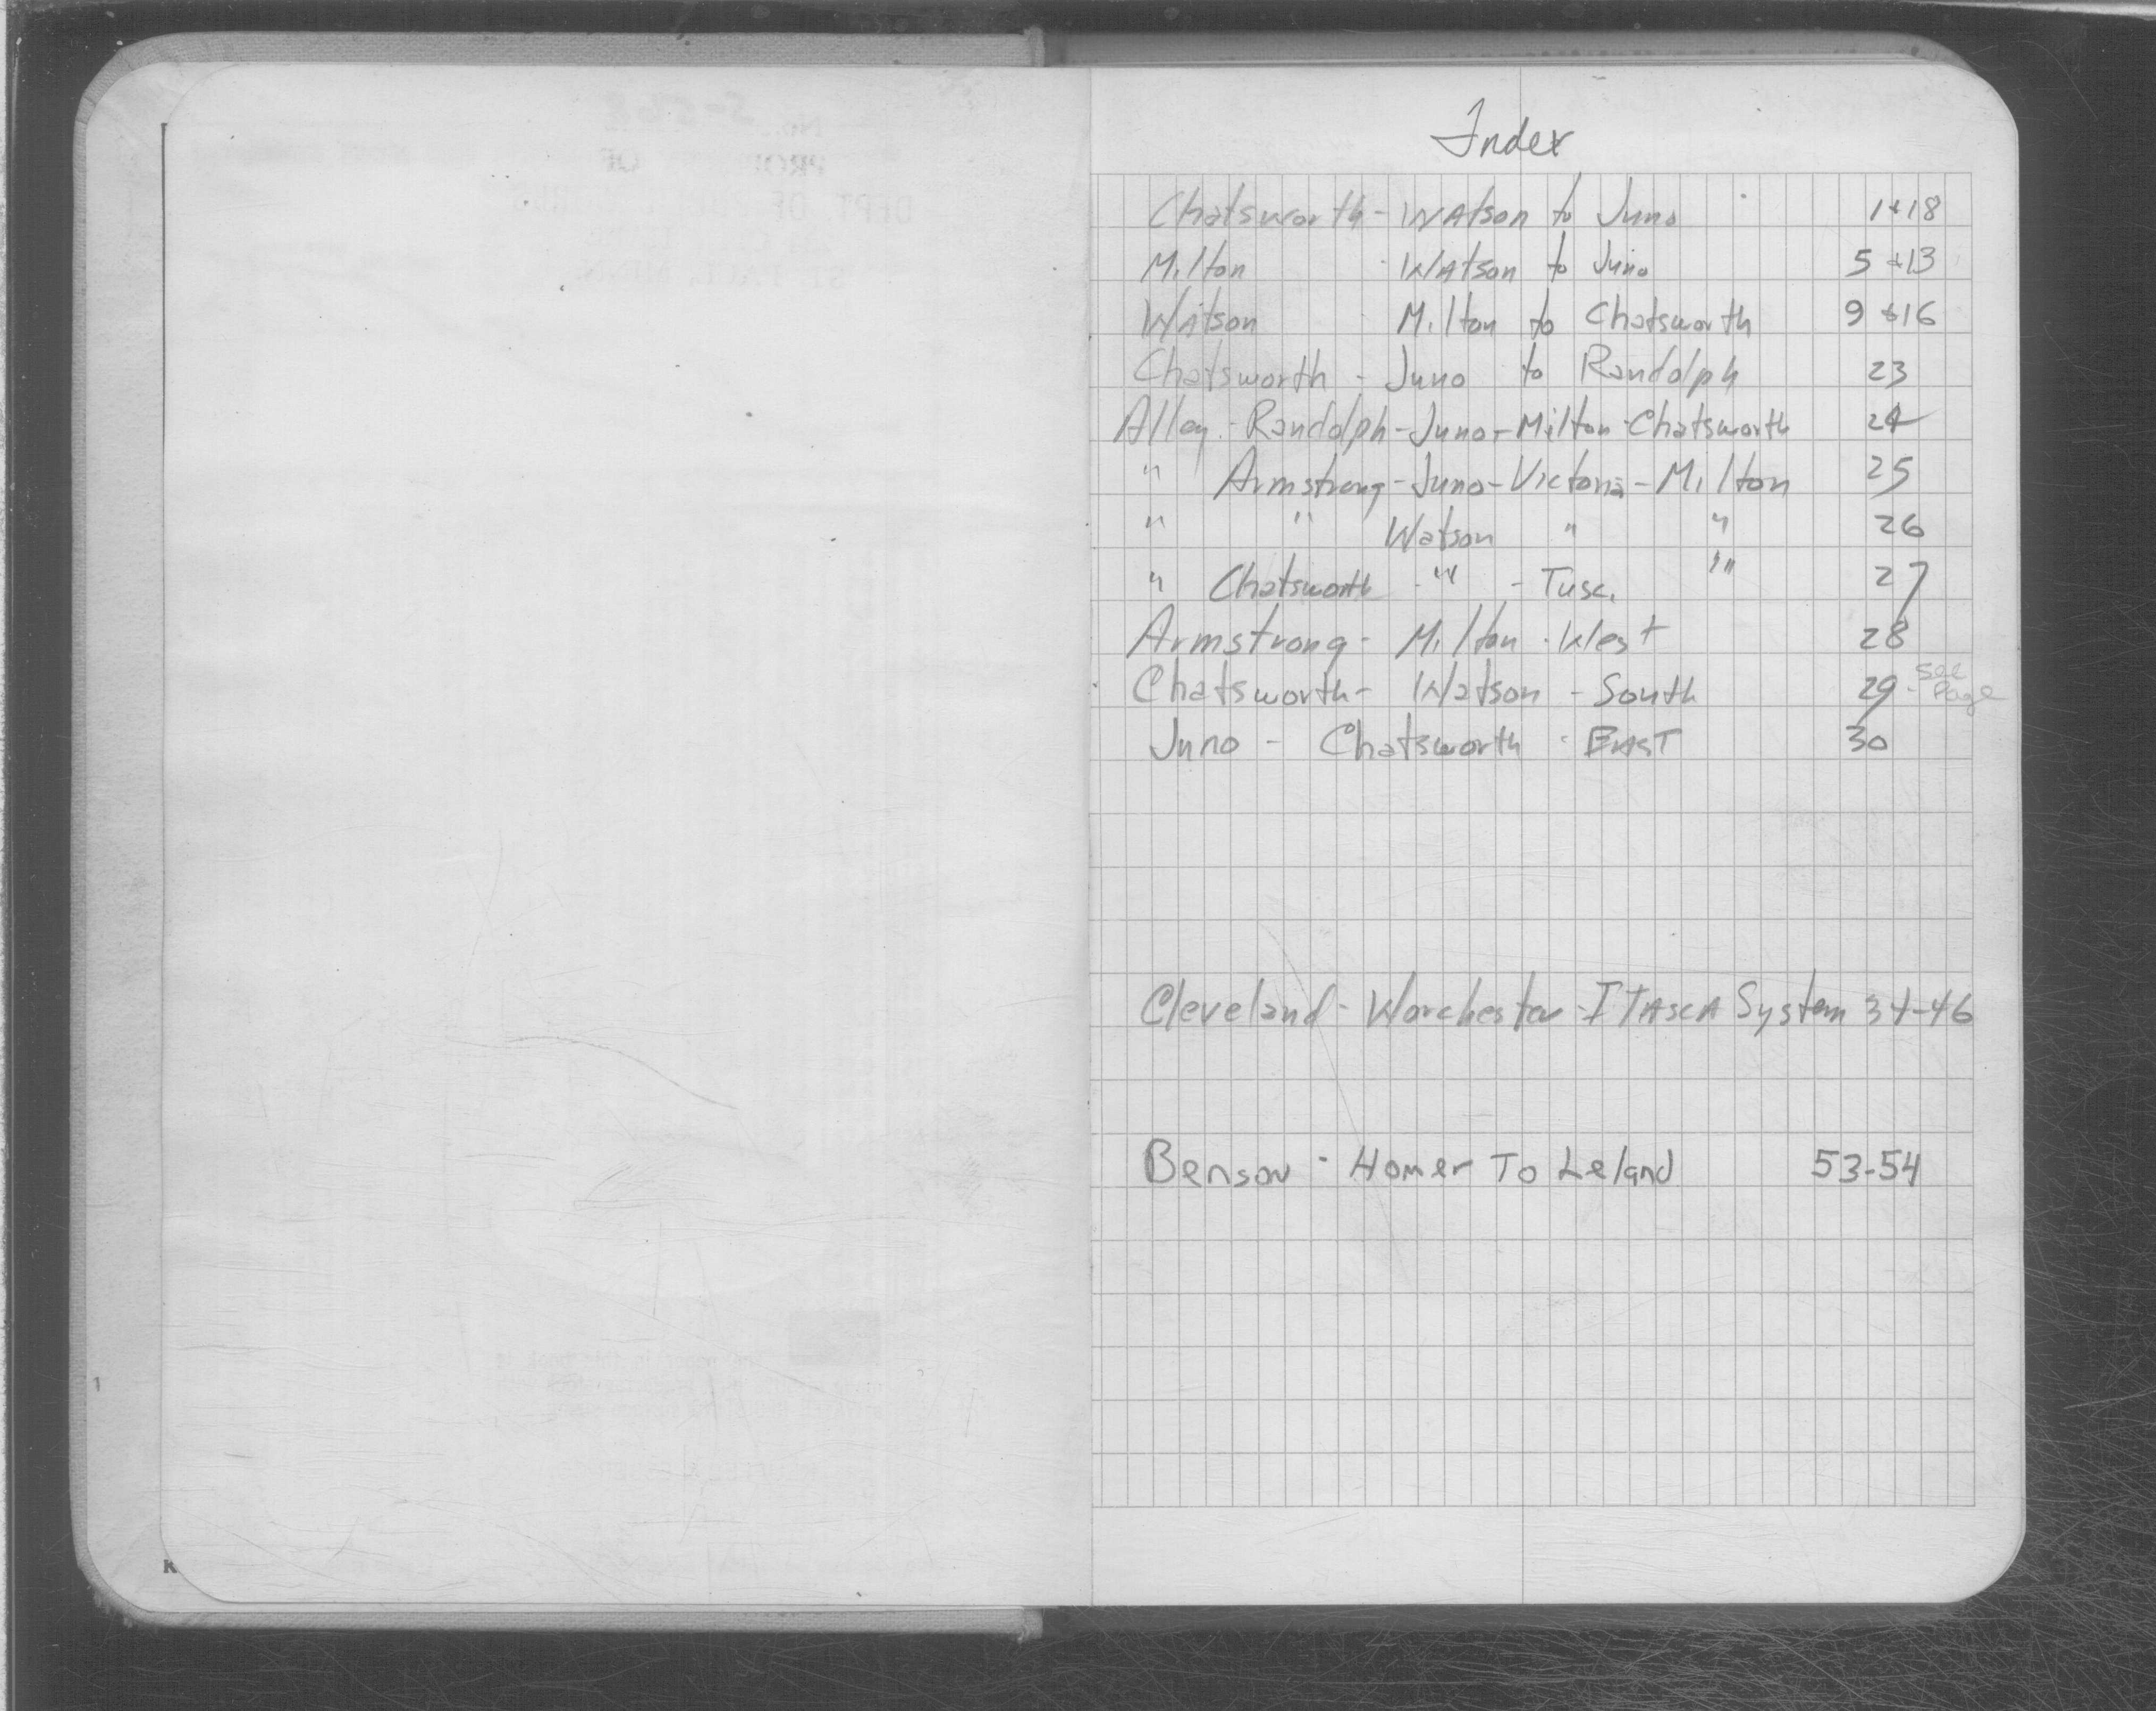 Index
Chatsworth - Watson to Juno 1+18
Milton - Watson to Juno 5+13
Watson Milton to Chatsworth 9+16
Chatsworth - Juno to Randolph 23
Alley - Randolph-Juno-Milton-Chatsworth 24
" Armstrong-Juno-Victoria-Milton 25
" " Watson " " 26
" Chatsworth - " - Tusc. " 27
Armstrong - Milton - West 28
Chatsworth - Watson - South 29 - See Page
Juno - Chatsworth - EAST 30
Cleveland - Worchester - ITASCA System 34-46
Benson - Homer To Leland 53-54